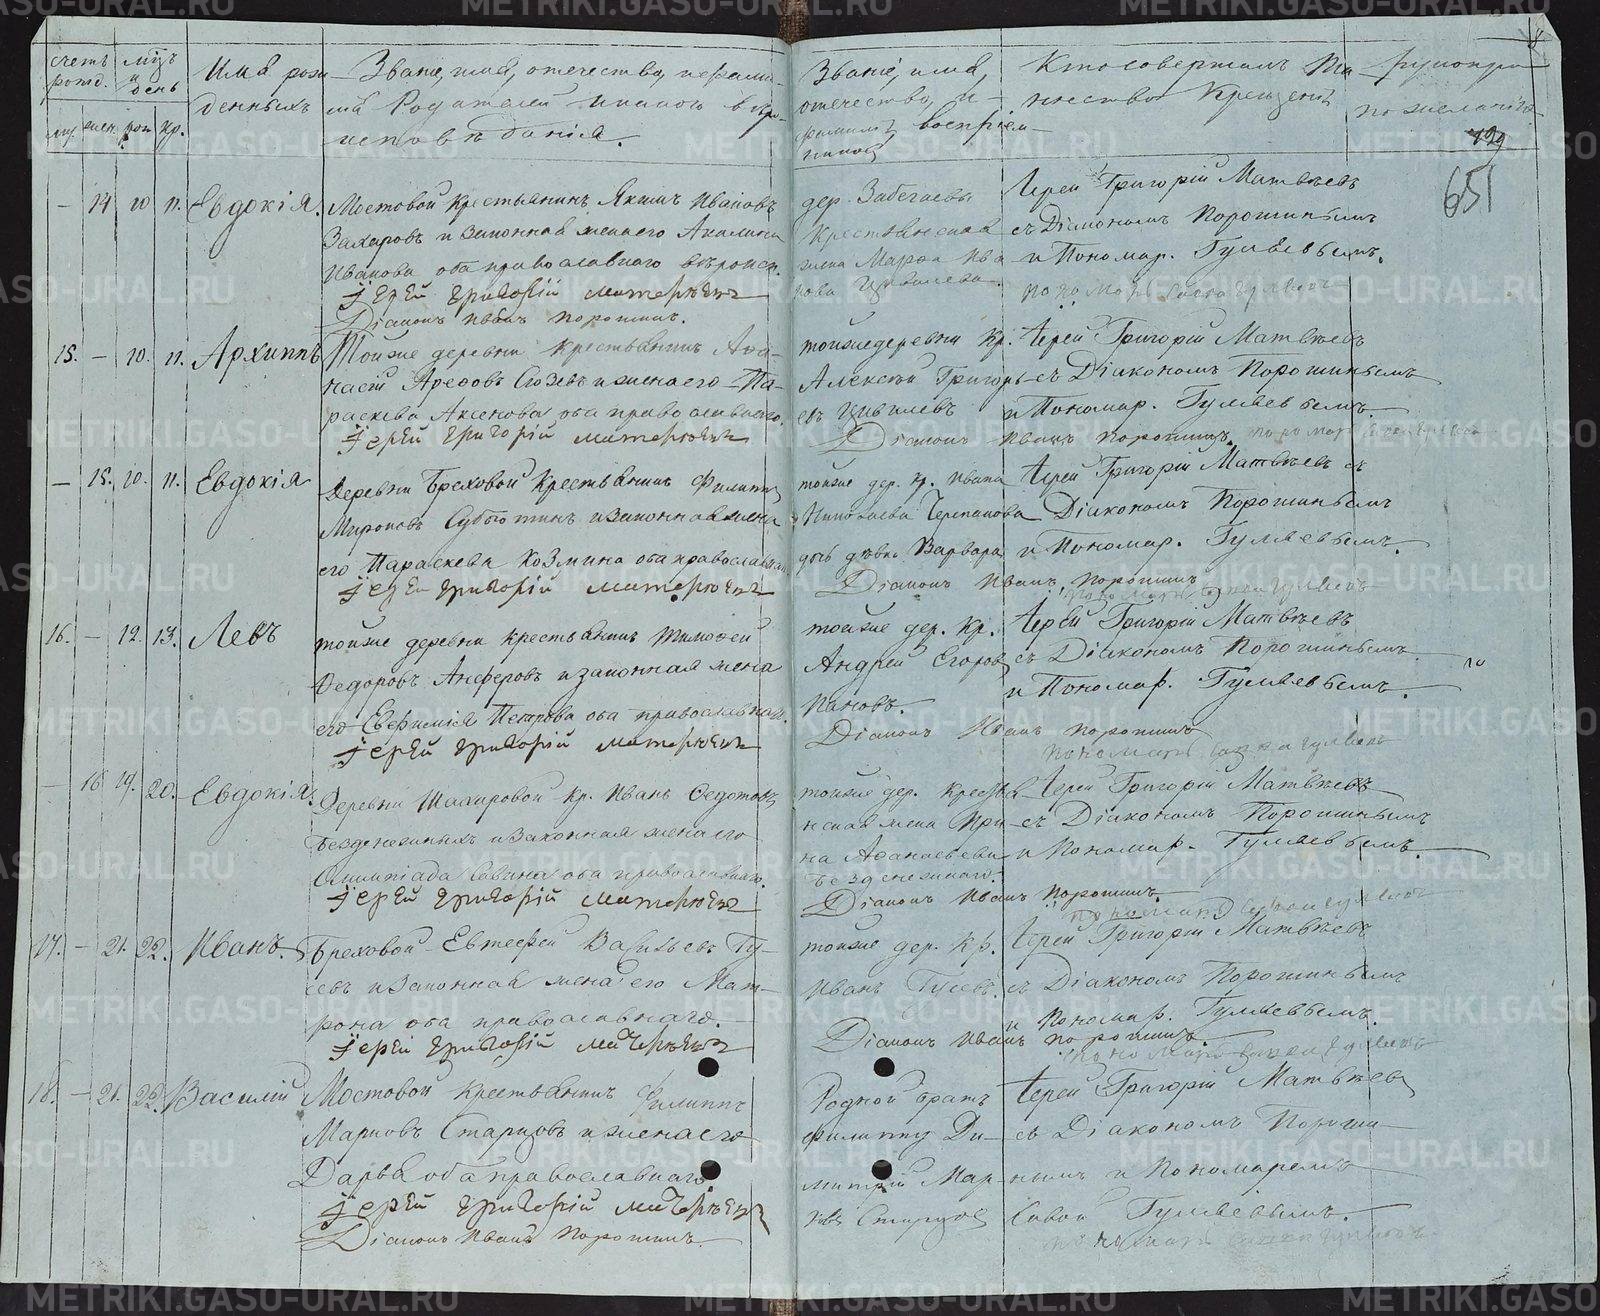 METRIKI.GASO-URAL.RU
счетъ рожд.
мѣсъ и день
муж. жен. рож. кр.
Имя рожденныхъ
Званіе, имя, отечество, и
Родителей и какого
исповѣданія.
Званіе, имя,
отечество, и
фамилія воспріем-
никовъ
Кто совершалъ Та-
инство Крещенія
по желанію
129
651
— 14 10 11. Евдокія.
Мостовой крестьянинъ Якимъ Ивановъ
Захаровъ и законная жена его Акилина
Иванова оба православнаго вѣроисп.
Іерей Григорій Матвѣевъ
Діаконъ Иванъ Порошинъ.
дер. Забегаевы
Крестьянская
жена Марѳа Ива
нова
Іерей Григорій Матвѣевъ
съ Діакономъ Порошинымъ
и Пономар. Гуляевымъ.
15. — 10. 11. Архиппъ
Тойже деревни крестьянинъ Аѳа-
насій Ареѳовъ и жена его Па-
раскева Аксенова оба православнаго.
Іерей Григорій Матвѣевъ
тойже деревни Кр.
Алексѣй Григорь-
евъ Цывилевъ
Діаконъ Иванъ Порошинъ.
Іерей Григорій Матвѣевъ
съ Діакономъ Порошинымъ
и Пономар. Гуляевымъ.
— 15. 10. 11. Евдокія
Деревни Бреховой крестьянинъ Филиппъ
Мироновъ Субботинъ и законная жена
его Параскева Козмина оба православнаго
Іерей Григорій Матвѣевъ
тойже дер. кр. Ивана
Николаева Черепанова
дочь дѣвка Варвара
Діаконъ Иванъ Порошинъ
Іерей Григорій Матвѣевъ съ
Діакономъ Порошинымъ
и Пономар. Гуляевымъ.
16. — 12. 13. Левъ
тойже деревни крестьянинъ Тимоѳей
Ѳедоровъ Анферовъ и законная жена
его Евфимія Петрова оба православнаго.
Іерей Григорій Матвѣевъ
тойже дер. Кр.
Андрей Егоровъ
Пановъ.
Діаконъ Иванъ Порошинъ
Іерей Григорій Матвѣевъ
съ Діакономъ Порошинымъ
и Пономар. Гуляевымъ.
— 16 19. 20. Евдокія.
Деревни Шапировой Кр. Иванъ Ѳедотовъ
Безденежныхъ и законная жена его
Олимпіада Савина оба православнаго.
Іерей Григорій Матвѣевъ
тойже дер. Крестья
нская жена Ири-
на Аѳанасьева
Безденежнаго.
Діаконъ Иванъ Порошинъ.
Іерей Григорій Матвѣевъ
съ Діакономъ Порошинымъ
и Пономар. Гуляевымъ.
17. — 21. 22. Иванъ.
Бреховой Евтефей Васильевъ Гу-
севъ и законная жена его Мат-
рона оба православнаго.
Іерей Григорій Матвѣевъ
тойже дер. Кр.
Иванъ Гусевъ.
Діаконъ Иванъ Порошинъ.
Іерей Григорій Матвѣевъ
съ Діакономъ Порошинымъ
и Пономар. Гуляевымъ.
18. — 21. 22. Василій
Мостовой крестьянинъ Филиппъ
Марковъ Старцовъ и жена его
Дарья оба православнаго.
Іерей Григорій Матвѣевъ
Діаконъ Иванъ Порошинъ.
Родной братъ
Филиппу Ди-
митрій Мар-
ковъ Старцовъ
Іерей Григорій Матвѣевъ
съ Діакономъ Пороши-
нымъ и Пономаремъ
Савой Гуляевымъ.